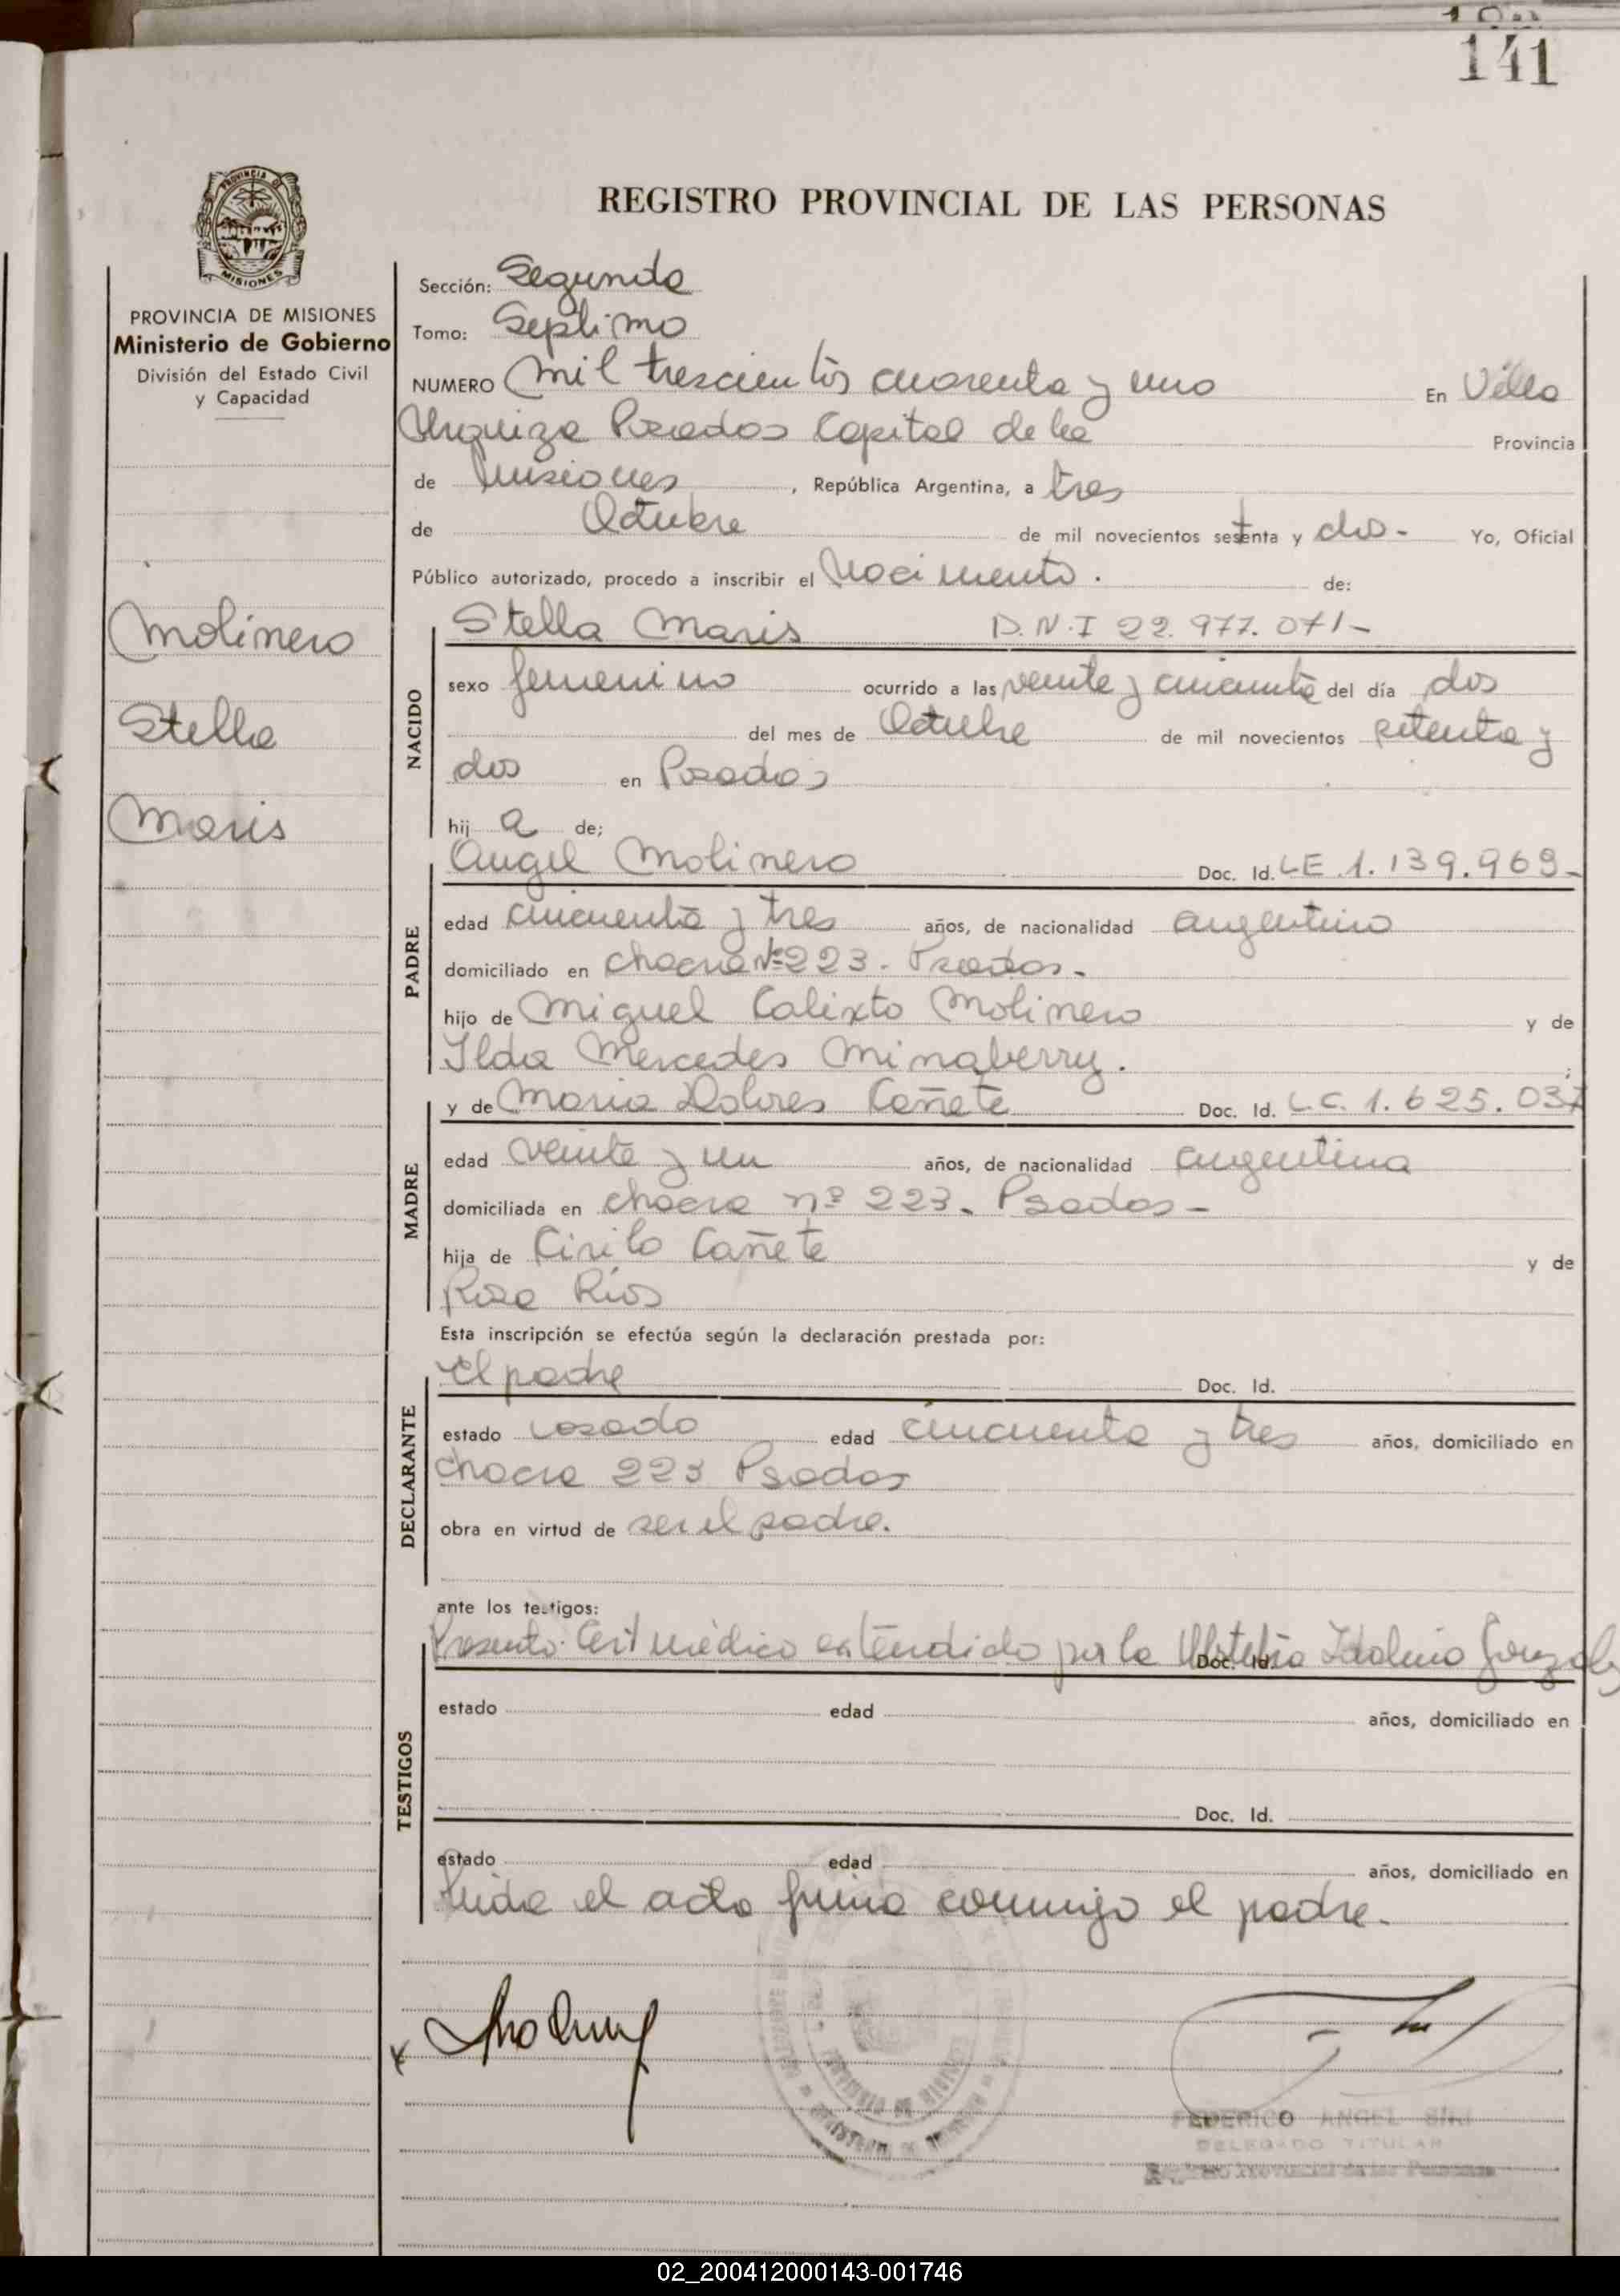 141
REGISTRO PROVINCIAL DE LAS PERSONAS
PROVINCIA DE
MISIONES
PROVINCIA DE MISIONES
Ministerio de Gobierno
División del Estado Civil
y Capacidad
Molinero
Stella
Maris
Sección: Segunda
Tomo: Septimo
NUMERO Mil trescientos cuarenta y uno En Villa
Urquiza Posadas Capital de la Provincia
de Misiones, República Argentina, a tres
de Octubre de mil novecientos setenta y dos - Yo, Oficial
Público autorizado, procedo a inscribir el Nacimiento. de:
NACIDO
Stella Maris D.N.I 22.977.071-
sexo femenino ocurrido a las veinte y cincuenta del día dos
del mes de Octubre de mil novecientos setenta y
dos en Posadas
hij a de;
PADRE
Angel Molinero Doc. Id. LE 1.139.969-
edad cincuenta y tres años, de nacionalidad argentino
domiciliado en chacra Nº 223. Posadas-
hijo de Miguel Calixto Molinero y de
Ilda Mercedes Minaberry.
MADRE
y de Maria Dolores Cañete Doc. Id. L.C. 1.625.037
edad veinte y un años, de nacionalidad argentina
domiciliada en chacra nº 223. Posadas-
hija de Cirilo Cañete y de
Rosa Rios
Esta inscripción se efectúa según la declaración prestada por:
DECLARANTE
el padre Doc. Id.
estado casado edad cincuenta y tres años, domiciliado en
chacra 223 Posadas
obra en virtud de ser el padre.
ante los testigos:
TESTIGOS
Presento Cert médico extendido por la Idalina Doc. Id.
estado edad años, domiciliado en
Doc. Id.
estado edad años, domiciliado en
Leida el acta firma conmigo el padre.
FEDERICO ANGEL
DELEGADO TITULAR
Registro Provincial de las Personas
02_200412000143-001746